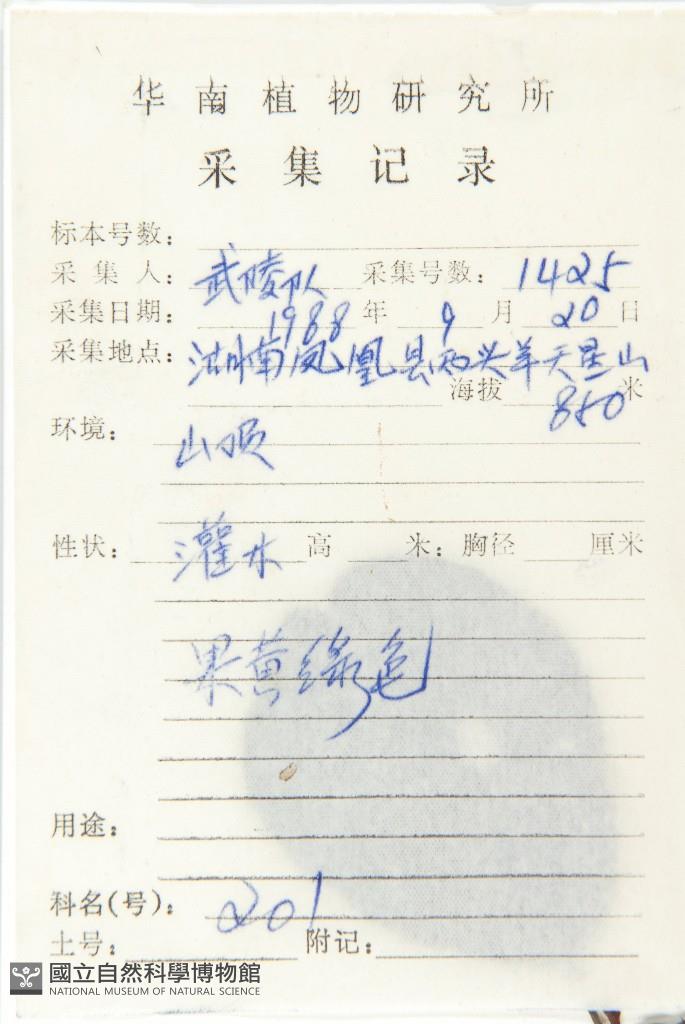 华南植物研究所
采集记录
标本号数：
采集人：武陵队 采集号数：1425
采集日期：1988年9月20日
采集地点：湖南凤凰县两头羊天星山
海拔850米
环境：山顶
性状：灌木 高 米；胸径 厘米
果黄绿色
用途：
科名(号)：201
土号： 附记：
國立自然科學博物館
NATIONAL MUSEUM OF NATURAL SCIENCE